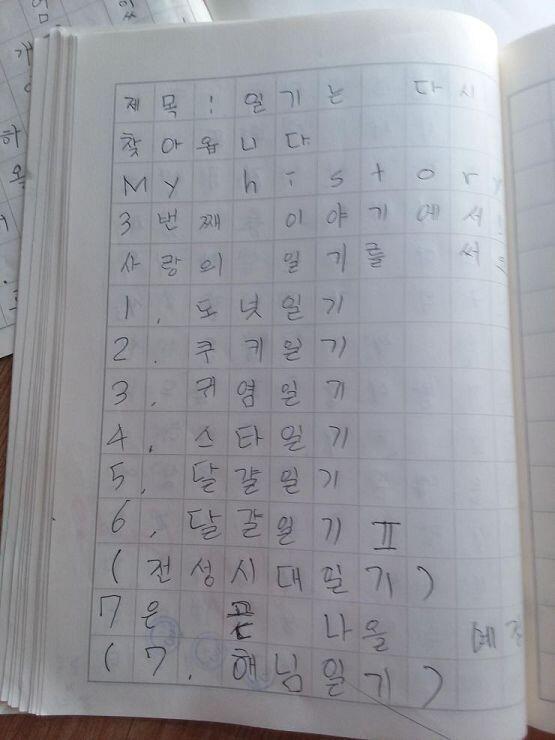 제목: 일기는 다시
찾아옵니다
My history
3번째 이야기에서
사랑의 일기를 써
1. 도넛일기
2. 쿠키일기
3. 귀염일기
4. 스타일기
5. 달걀일기
6. 달걀일기 II
(전성시대일기)
7은 곧 나올 예정
(7. 해님일기)